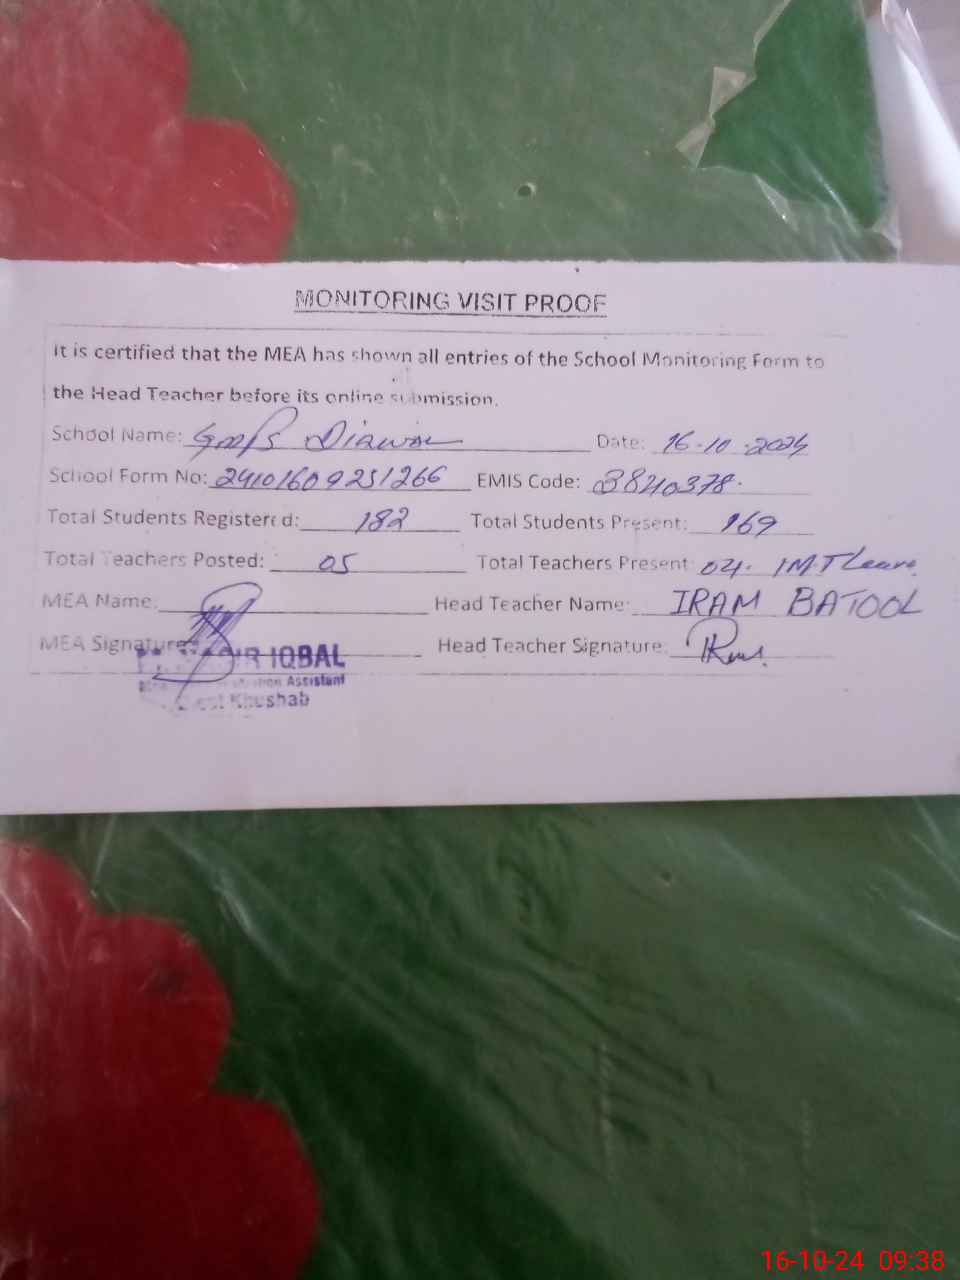 MONITORING VISIT PROOF
It is certified that the MEA has shown all entries of the School Monitoring Form to
the Head Teacher before its online submission.
School Name: Diawal Date: 16-10-2024
School Form No: 24101609251266 EMIS Code: 3840378.
Total Students Registered: 182 Total Students Present: 169
Total Teachers Posted: 05 Total Teachers Present: 04. 1M.T Leave
MEA Name: Head Teacher Name: IRAM BATOOL
MEA Signature: Head Teacher Signature:
IQBAL
Assistant
Khushab
16-10-24 09:38